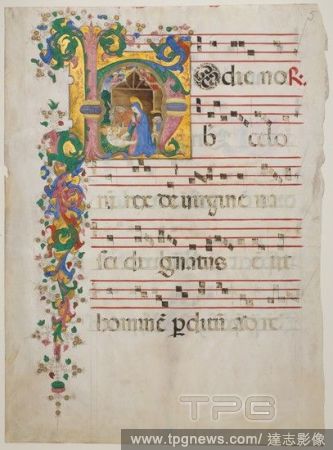 5
Hodie no R.
b celo
rū rex de uirginē na
sci dignatus est ut
hominē pditū ad re
TPG
www.tpgnews.com/ 達志影像